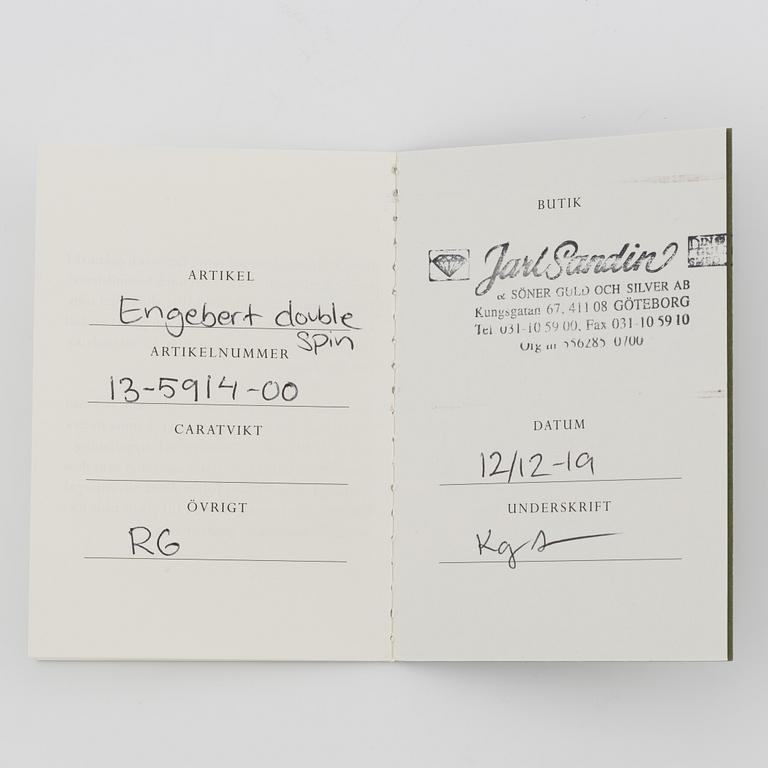 ARTIKEL
Engebert double
spin
ARTIKELNUMMER
13-5914-00
CARATVIKT
ÖVRIGT
RG
BUTIK
Jarl Sandin
& SÖNER GULD OCH SILVER AB
Kungsgatan 67, 411 08 GÖTEBORG
Tel 031-10 59 00, Fax 031-10 59 10
Org nr 556285 0700
DIN
GULD
SMED
DATUM
12/12-19
UNDERSKRIFT